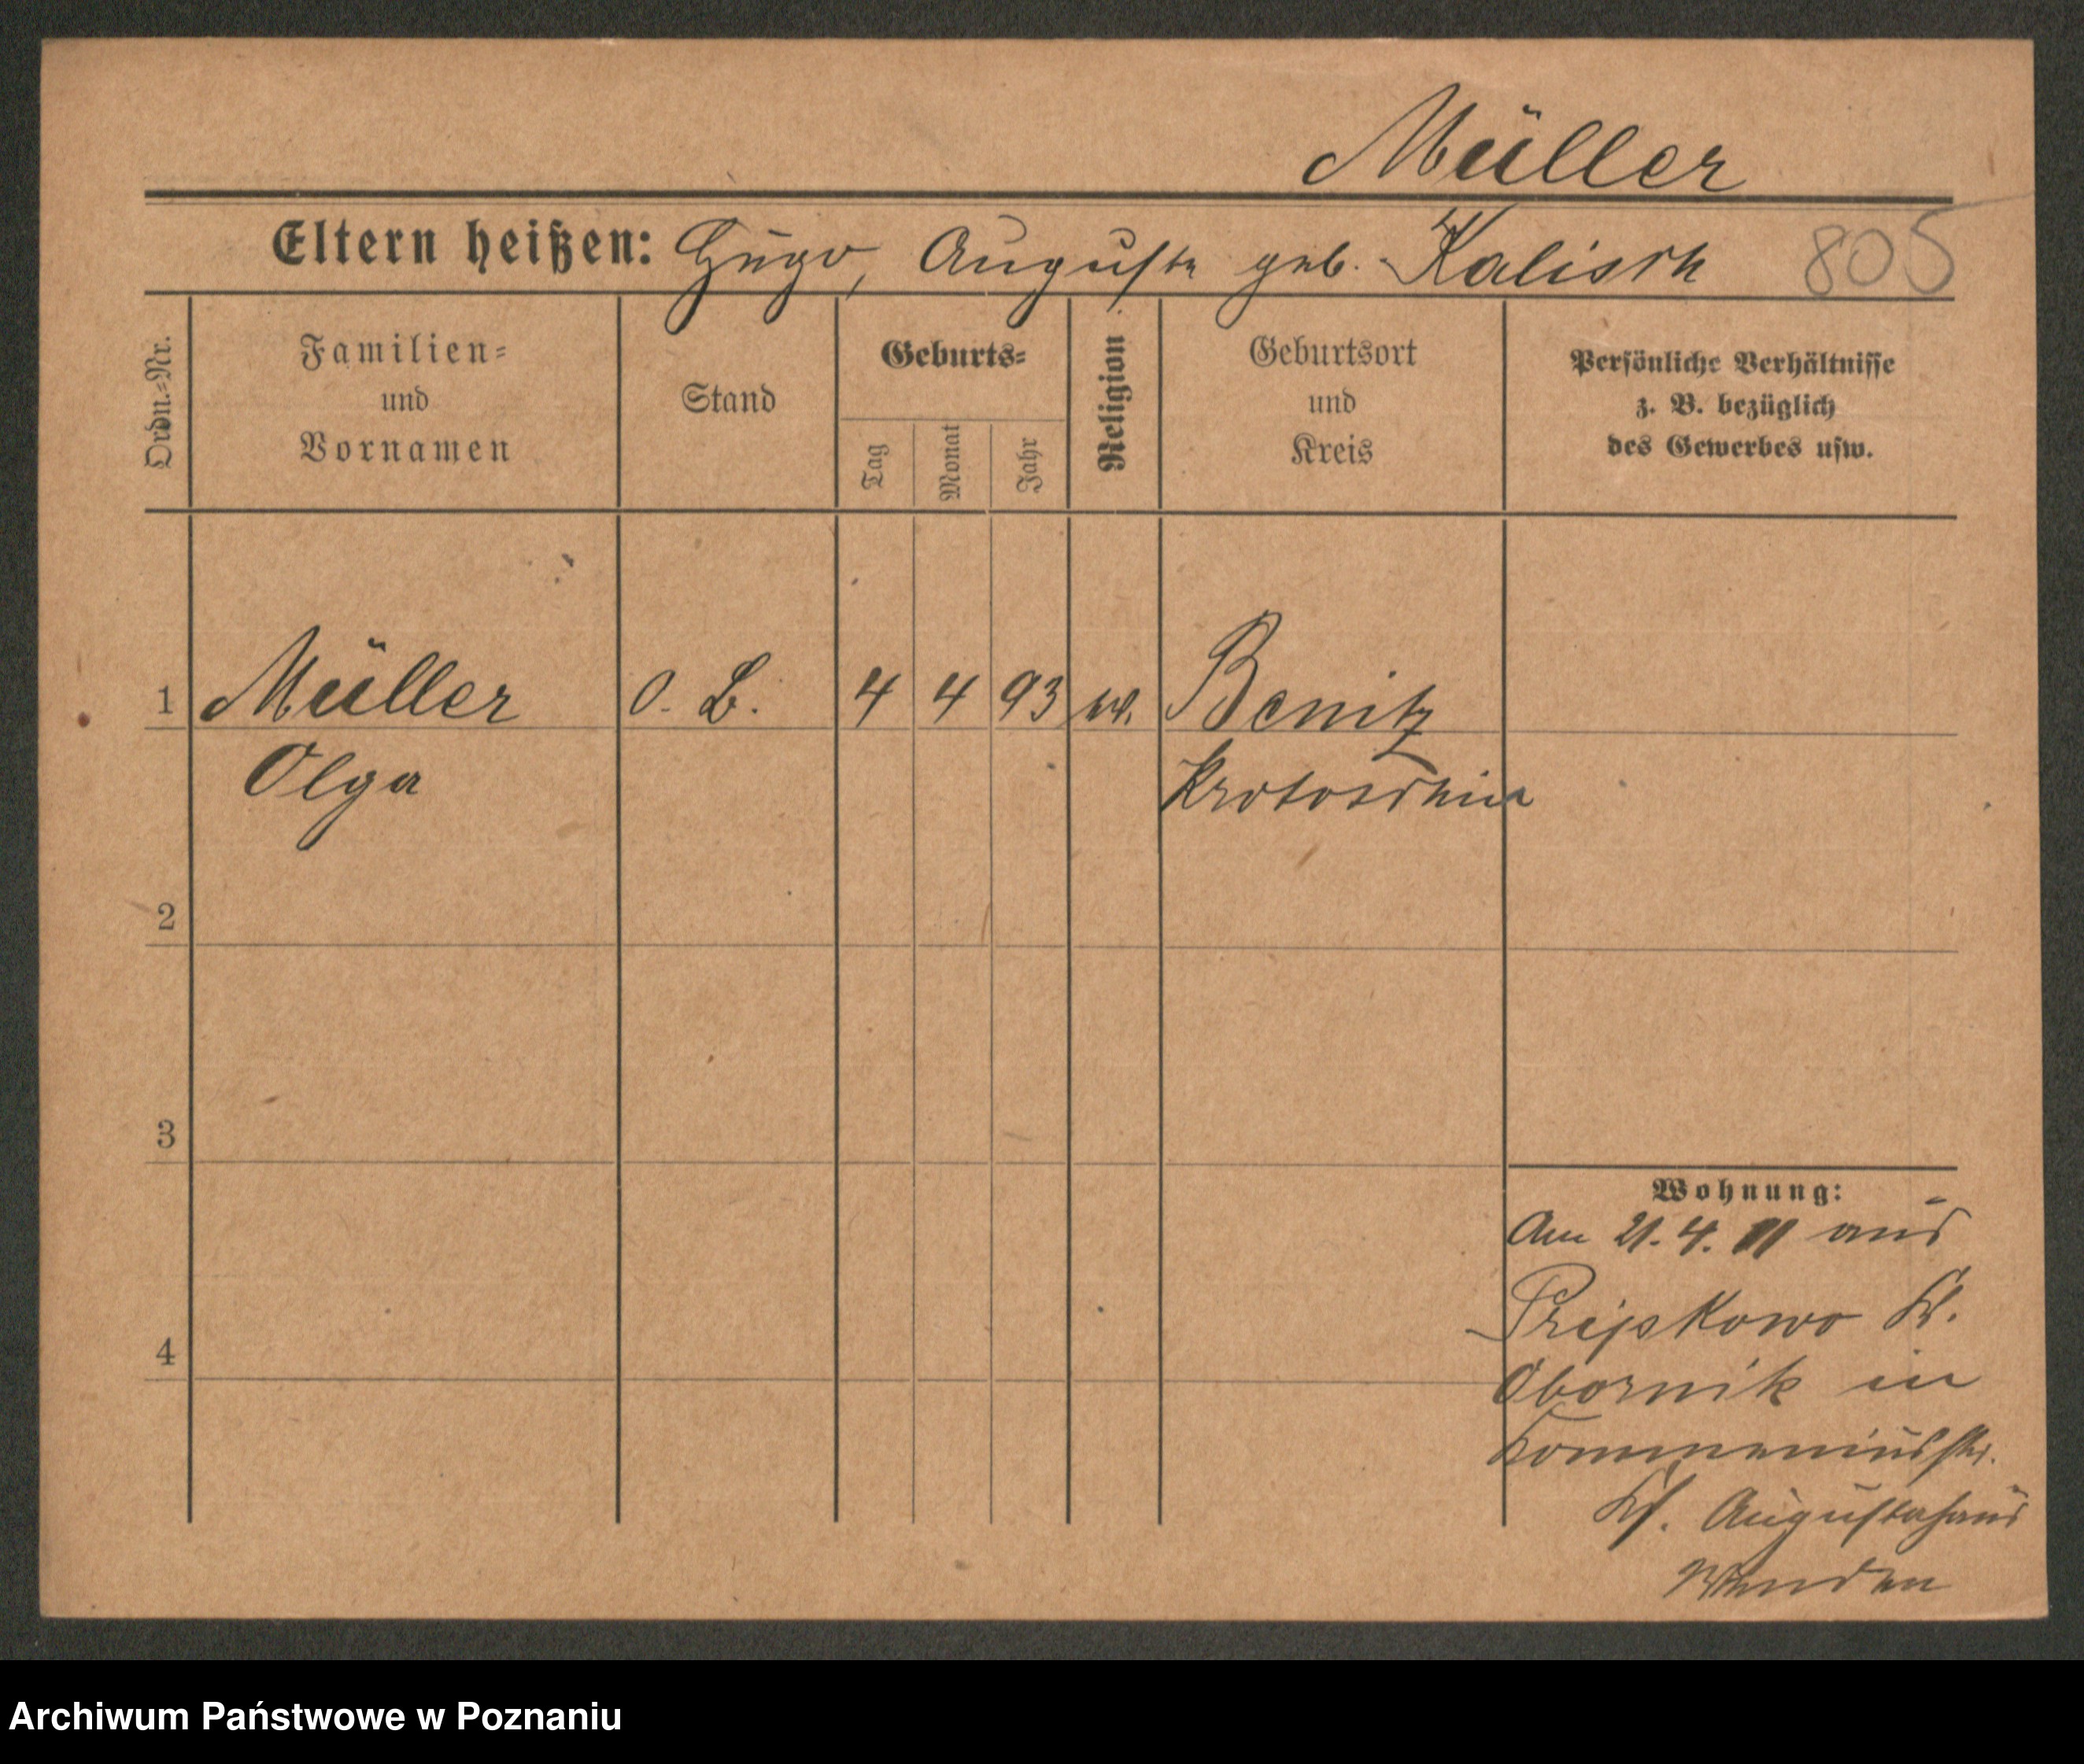 Müller
Eltern heißen: Hugo, Auguste geb. Kalisch 805
Ordn.-Nr.
Familien-
und
Vornamen
Stand
Geburts-
Tag
Monat
Jahr
Religion
Geburtsort
und
Kreis
Persönliche Verhältnisse
z. B. bezüglich
des Gewerbes usw.
1 Müller O. B. 4 4 93 ev. Benitz
Olga Krotoschin
2
3
4
Wohnung:
Am 21.4.11 aus
Pripkowo Kr.
Obornik in
str.
Augustahaus
Archiwum Państwowe w Poznaniu